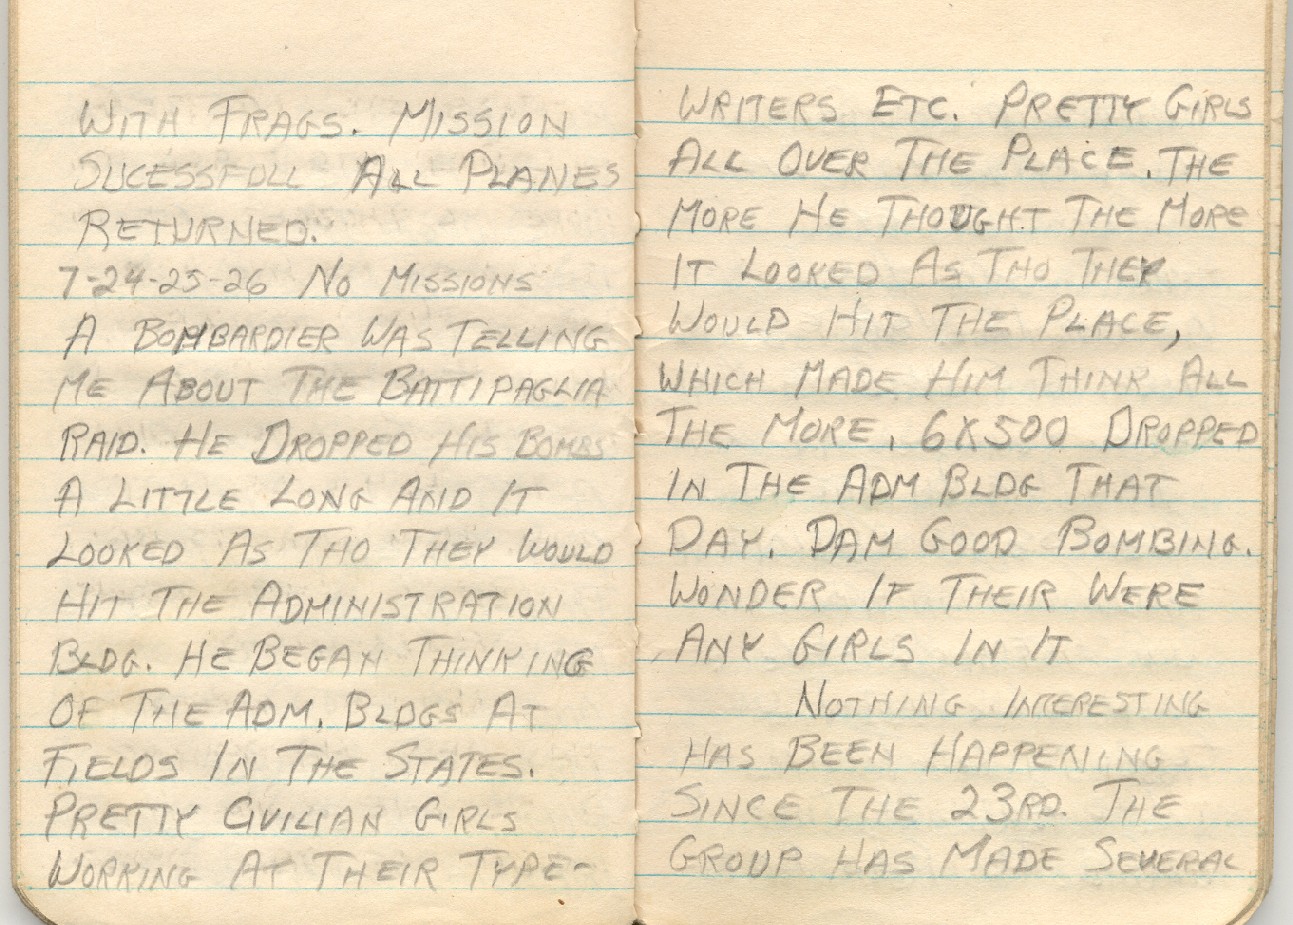 WITH FRAGS. MISSION
SUCESSFULL ALL PLANES
RETURNED.
7-24-25-26 NO MISSIONS
A BOMBARDIER WAS TELLING
ME ABOUT THE BATTIPAGLIA
RAID. HE DROPPED HIS BOMBS
A LITTLE LONG AND IT
LOOKED AS THO THEY WOULD
HIT THE ADMINISTRATION
BLDG. HE BEGAN THINKING
OF THE ADM. BLDGS AT
FIELDS IN THE STATES.
PRETTY CIVILIAN GIRLS
WORKING AT THEIR TYPE-
WRITERS ETC. PRETTY GIRLS
ALL OVER THE PLACE. THE
MORE HE THOUGHT THE MORE
IT LOOKED AS THO THEY
WOULD HIT THE PLACE,
WHICH MADE HIM THINK ALL
THE MORE. 6X500 DROPPED
IN THE ADM BLDG THAT
DAY. DAM GOOD BOMBING.
WONDER IF THEIR WERE
ANY GIRLS IN IT
NOTHING INTERESTING
HAS BEEN HAPPENING
SINCE THE 23RD. THE
GROUP HAS MADE SEVERAL